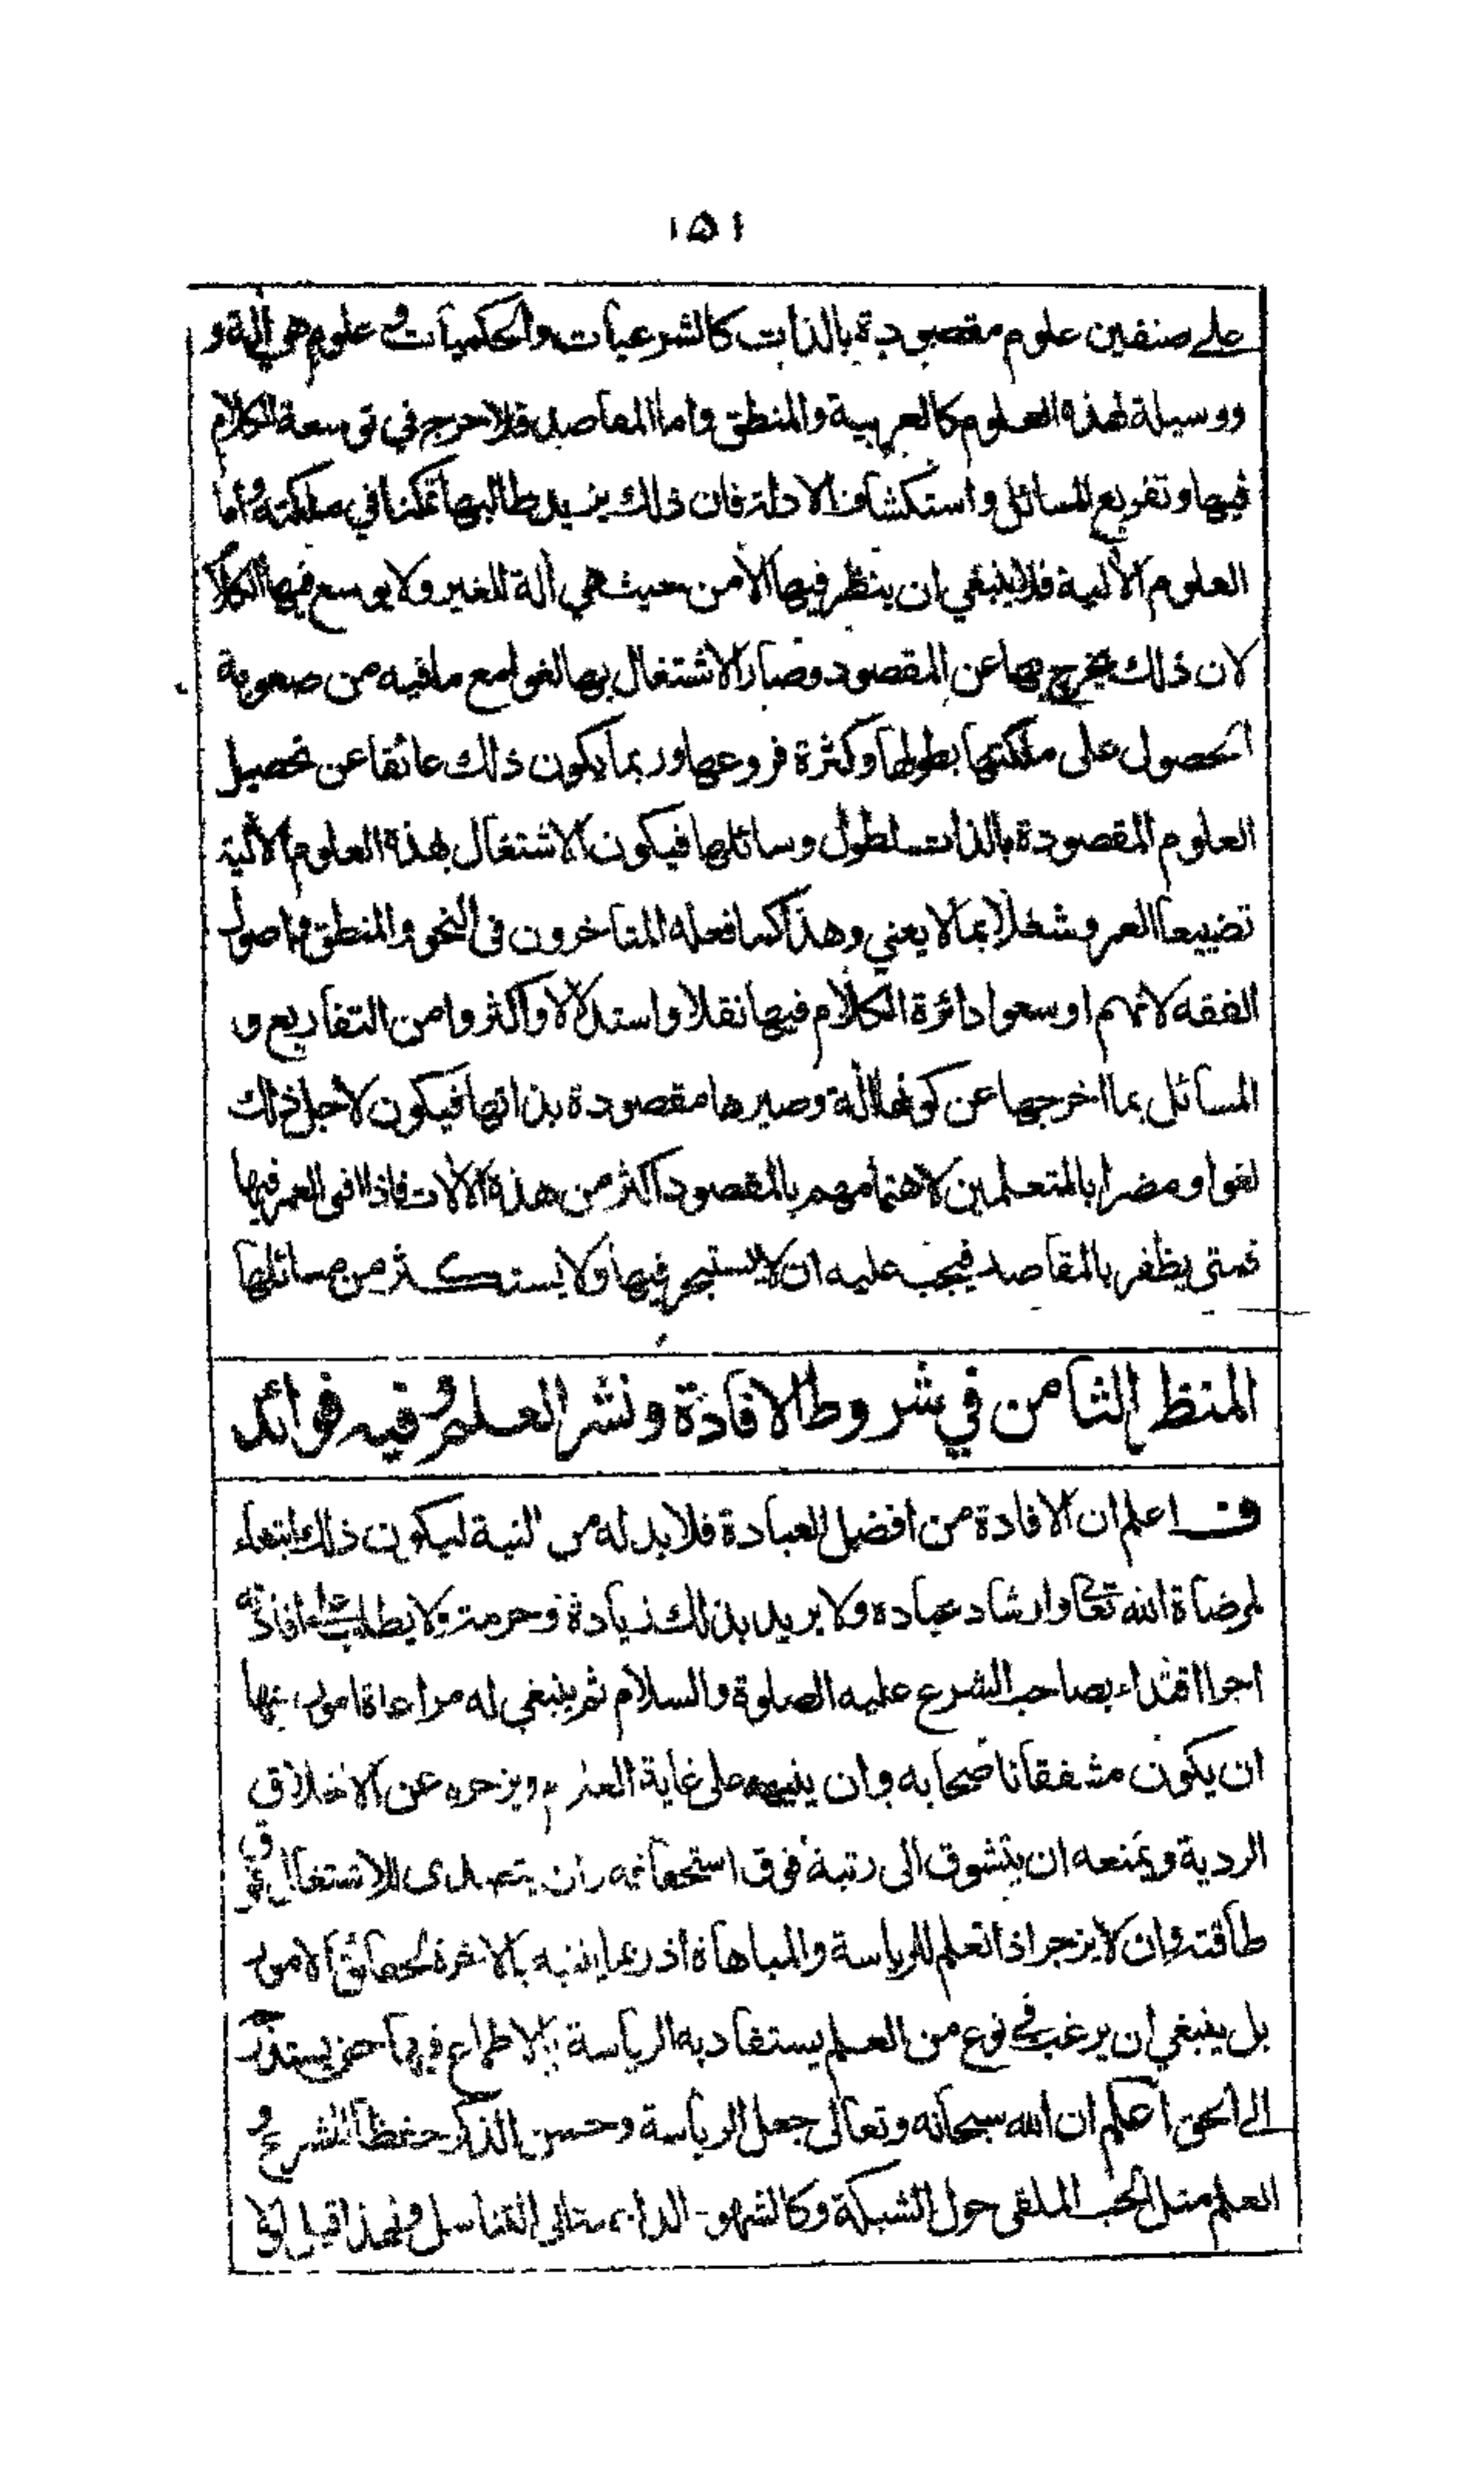 ١٥١
على صنفين علوم مقصودة بالذات كالشرعيات والحكميات وفي علوم هي آلة و
ووسيلة لهذه العلوم كالعربية والمنطق واما المقاصد فلا حرج في توسعة الكلام
فيها وتفريع المسائل واستكشاف الادلة فان ذلك يزيد طالبها تمكنا في ملكته واما
العلوم الآلية فلا ينبغي ان ينظر فيها الا من حيث هي آلة للغير ولا يوسع فيها الكلام
لان ذلك يخرج بها عن المقصود وصار الاشتغال بها لغوا مع ما فيه من صعوبة
الحصول على ملكتها بطولها وكثرة فروعها وربما يكون ذلك عائقا عن تحصيل
العلوم المقصودة بالذات لطول وسائلها فيكون الاشتغال بهذه العلوم الآلية
تضييعا للعمر وشغلا بما لا يعني وهذا كما فعله المتاخرون في النحو والمنطق واصول
الفقه لانهم اوسعوا دائرة الكلام فيها نقلا واستدلالا واكثروا من التفاريع و
المسائل بما اخرجها عن كونها آلة وصيرها مقصودة بذاتها فيكون لاجل ذلك
لغوا ومضرا بالمتعلمين لاهتمامهم بالمقصود اكثر من هذه الآلات فاذا افنى العمر فيها
فمتى يظفر بالمقاصد فيجب عليه ان لا يستبحر فيها ولا يستكثر من مسائلها
المنظر الثامن في شروط الافادة ونشر العلم وفيه فوائد
ف اعلم ان الافادة من افضل العبادة فلا بد له من النية ليكون ذلك ابتغاء
لمرضاة الله تعالى وارشاد عباده ولا يريد بذلك زيادة وحرمة ولا يطلب على افادته
اجرا اقتداء بصاحب الشرع عليه الصلوة والسلام ثم ينبغي له مراعاة امور منها
ان يكون مشفقا ناصحا به وان ينبهه على غاية العلم ويزجره عن الاخلاق
الردية ويمنعه ان يتشوق الى رتبة فوق استحقاقه وان يتصدى للاشتغال فوق
طاقته وان لا يزجر اذا تعلم للرياسة والمباهاة اذ ربما يتنبه بالآخرة لحقائق الامور
بل ينبغي ان يرغب في نوع من العلم يستفاد به الرياسة بالاطماع فيها حتى يستدرجه
الى الحق اعلم ان الله سبحانه وتعالى جعل الرياسة وحسن الذكر حفظا للشرع و
العلم مثل الحب الملقى حول الشبكة وكالشهوة الداعية الى التناسل ولهذا قيل لولا